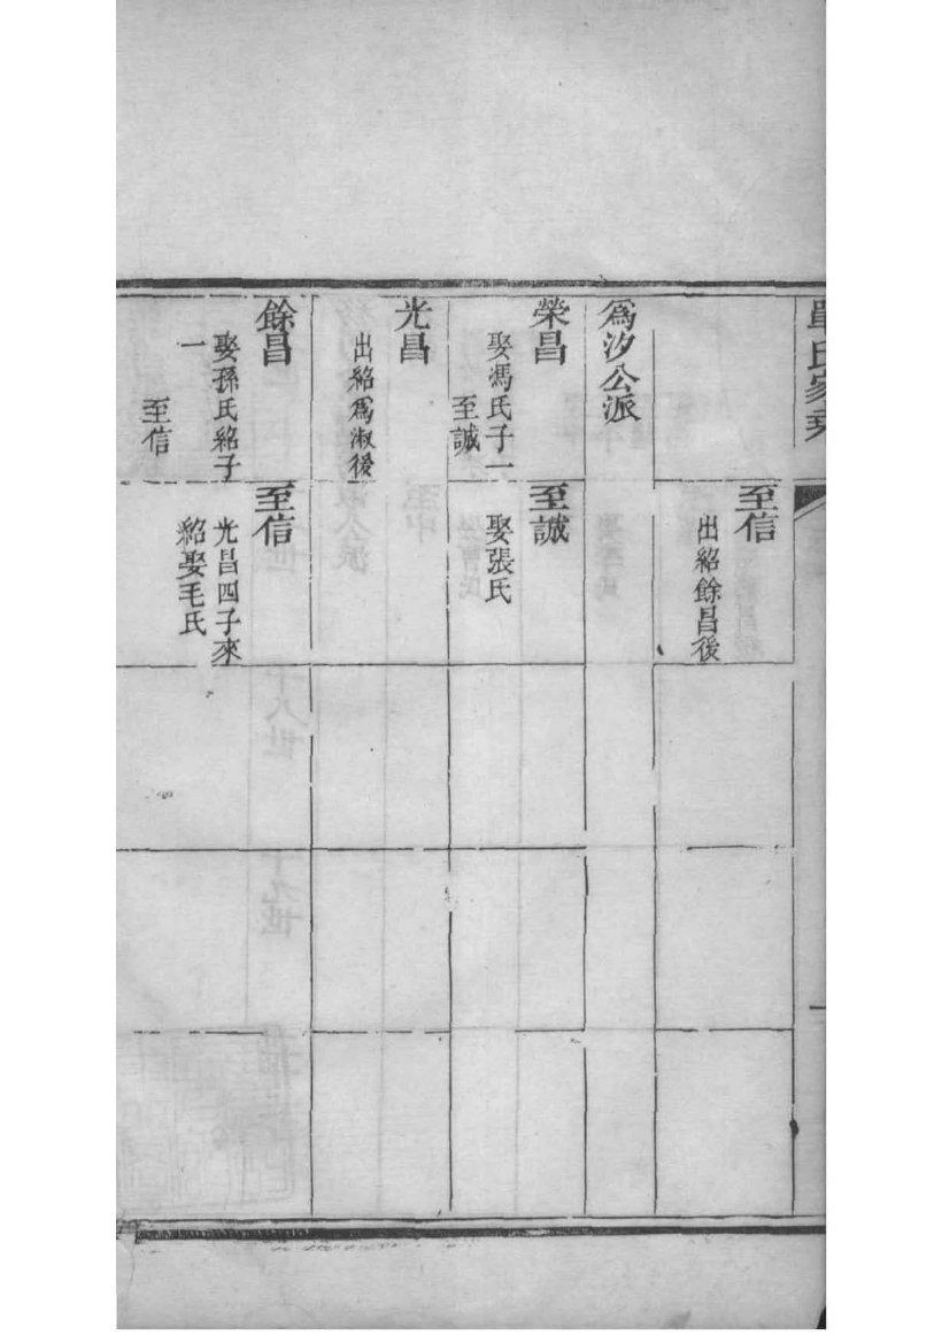 氏家乘
至信
出紹餘昌後
爲汐公派
榮昌
娶馮氏子一
至誠
至誠
娶張氏
光昌
出紹爲淑後
餘昌
娶孫氏紹子
一
至信
至信
光昌四子來
紹娶毛氏